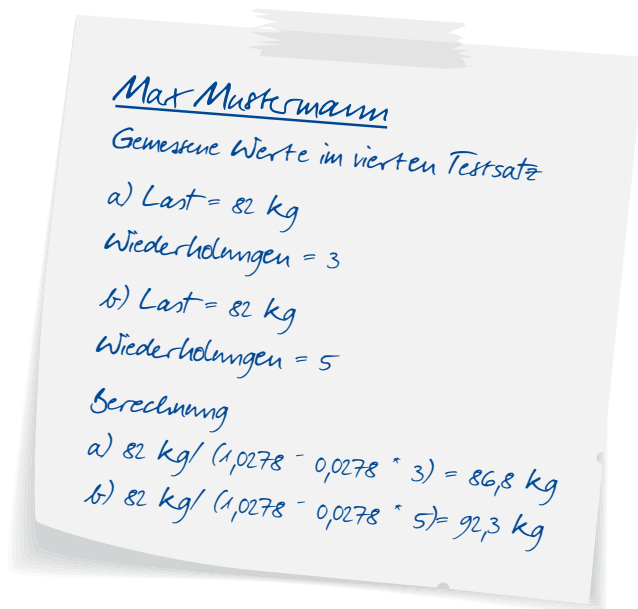 Max Mustermann
Gemessene Werte im vierten Testsatz
a) Last = 82 kg
Wiederholungen = 3
b) Last = 82 kg
Wiederholungen = 5
Berechnung
a) 82 kg/ (1,0278 - 0,0278 * 3) = 86,8 kg
b) 82 kg/ (1,0278 - 0,0278 * 5)= 92,3 kg